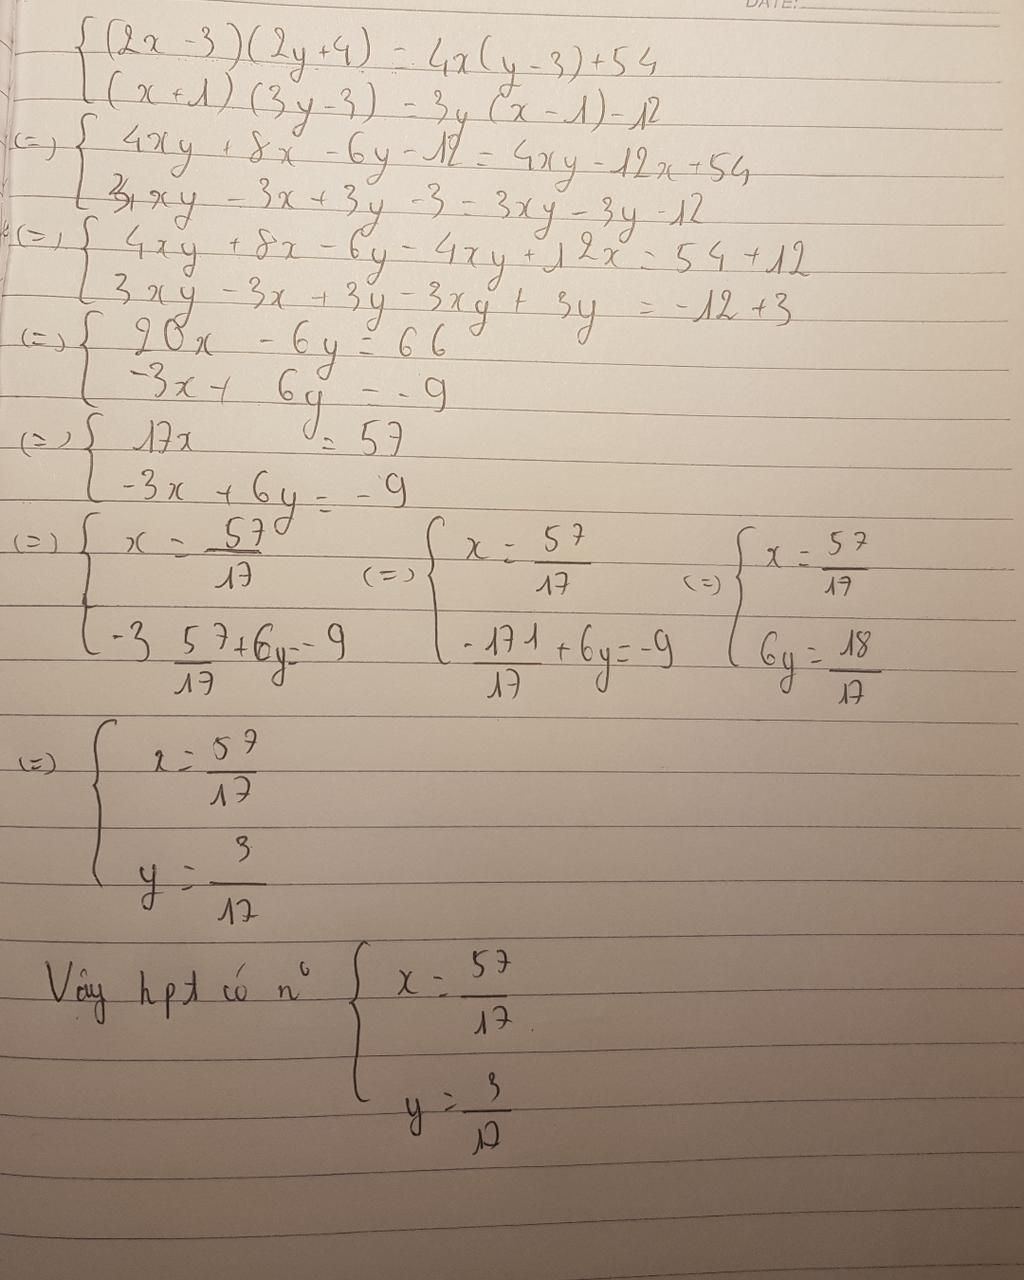 DATE:
{ (2x -3)(2y+4) = 4x(y-3)+54
(x+1)(3y-3) = 3y(x-1)-12
(=) { 4xy + 8x - 6y - 12 = 4xy - 12x + 54
3xy - 3x + 3y - 3 = 3xy - 3y - 12
(=) { 4xy + 8x - 6y - 4xy + 12x = 54 + 12
3xy - 3x + 3y - 3xy + 3y = -12 + 3
(=) { 20x - 6y = 66
-3x + 6y = -9
(=) { 17x = 57
-3x + 6y = -9
(=) { x = 57/17 (=) { x = 57/17 (=) { x = 57/17
-3 57/17 + 6y = -9 -171/17 + 6y = -9 6y = 18/17
(=) { x = 57/17
y = 3/17
Vây hpt có n° { x = 57/17
y = 3/17